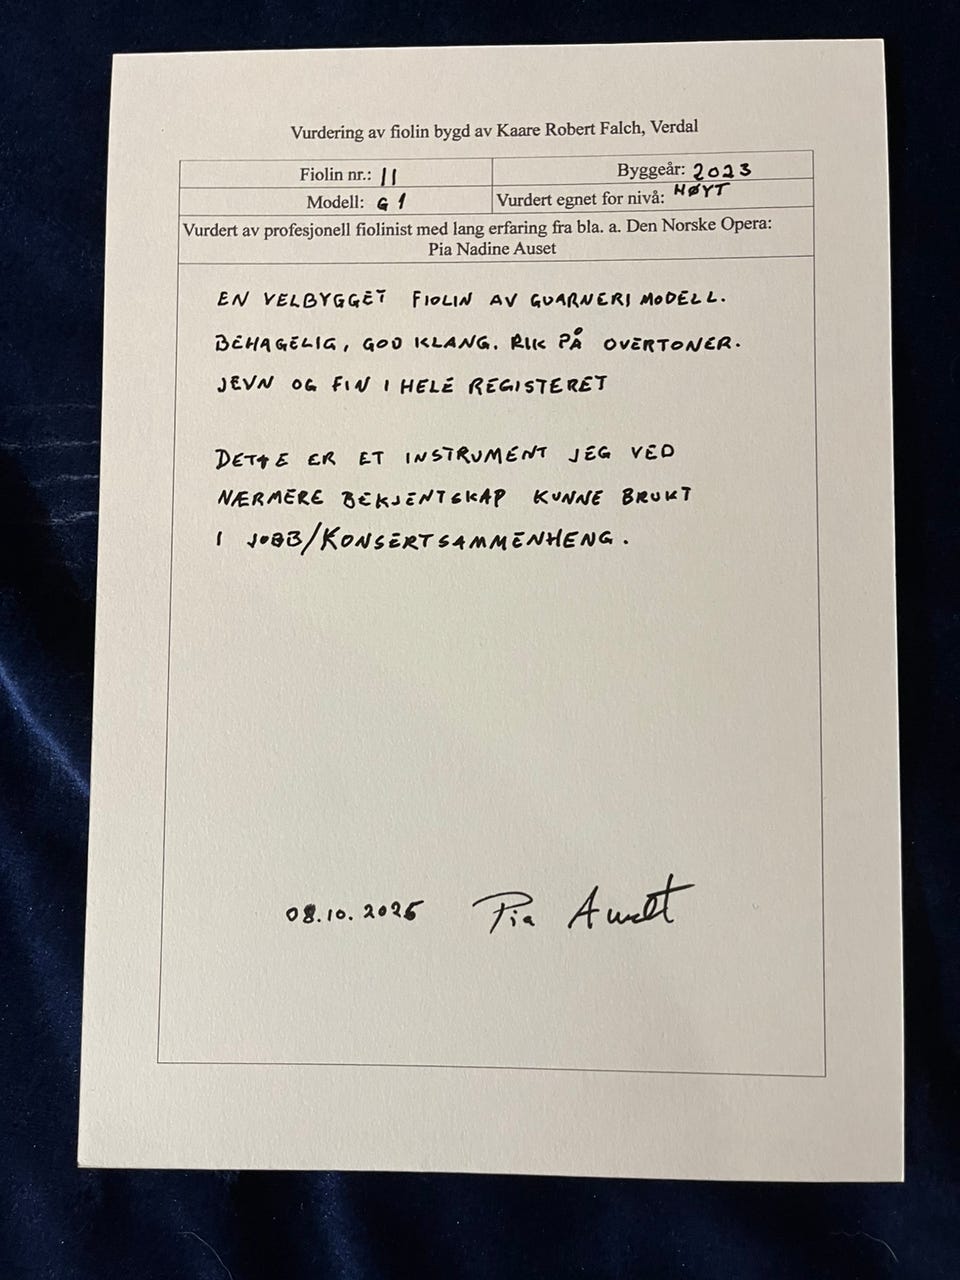 Vurdering av fiolin bygd av Kaare Robert Falch, Verdal
Fiolin nr.: 11
Byggeår: 2023
Modell: G1
Vurdert egnet for nivå: HØYT
Vurdert av profesjonell fiolinist med lang erfaring fra bla. a. Den Norske Opera:
Pia Nadine Auset
EN VELBYGGET FIOLIN AV GUARNERI MODELL.
BEHAGELIG, GOD KLANG. RIK PÅ OVERTONER.
JEVN OG FIN I HELE REGISTERET
DETTE ER ET INSTRUMENT JEG VED
NÆRMERE BEKJENTSKAP KUNNE BRUKT
I JOBB/KONSERTSAMMENHENG.
08.10.2025 Pia Auset